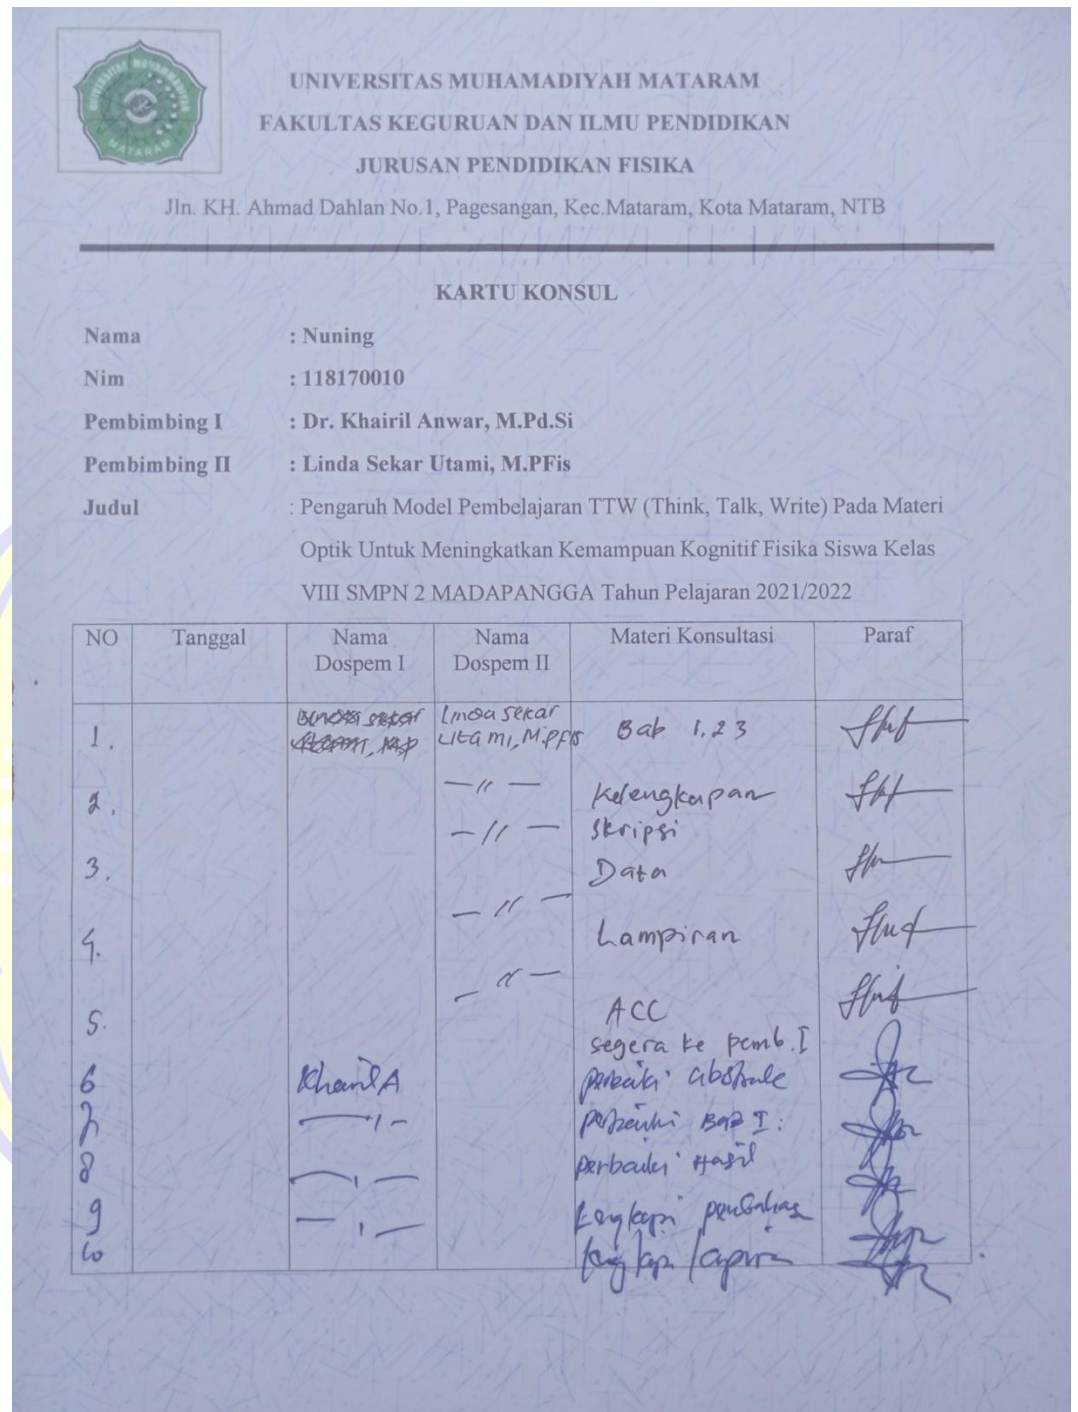 UNIVERSITAS MUHAMMADIYAH MATARAM
UNIVERSITAS MUHAMADIYAH MATARAM
FAKULTAS KEGURUAN DAN ILMU PENDIDIKAN
JURUSAN PENDIDIKAN FISIKA
Jln. KH. Ahmad Dahlan No.1, Pagesangan, Kec.Mataram, Kota Mataram, NTB
KARTU KONSUL
Nama : Nuning
Nim : 118170010
Pembimbing I : Dr. Khairil Anwar, M.Pd.Si
Pembimbing II : Linda Sekar Utami, M.PFis
Judul : Pengaruh Model Pembelajaran TTW (Think, Talk, Write) Pada Materi
Optik Untuk Meningkatkan Kemampuan Kognitif Fisika Siswa Kelas
VIII SMPN 2 MADAPANGGA Tahun Pelajaran 2021/2022
NO Tanggal Nama Nama Materi Konsultasi Paraf
Dospem I Dospem II
Linda Sekar
1. Utami, M.PFis Bab 1,2 3
2. —〃— Kelengkapan
—〃— Skripsi
3. Data
—〃—
4. Lampiran
—〃—
5. ACC
segera ke pemb. I
6 Khairil A perbaiki abstrak
7 perbaiki Bab I
8 perbaiki Hasil
9 Lengkapi
10